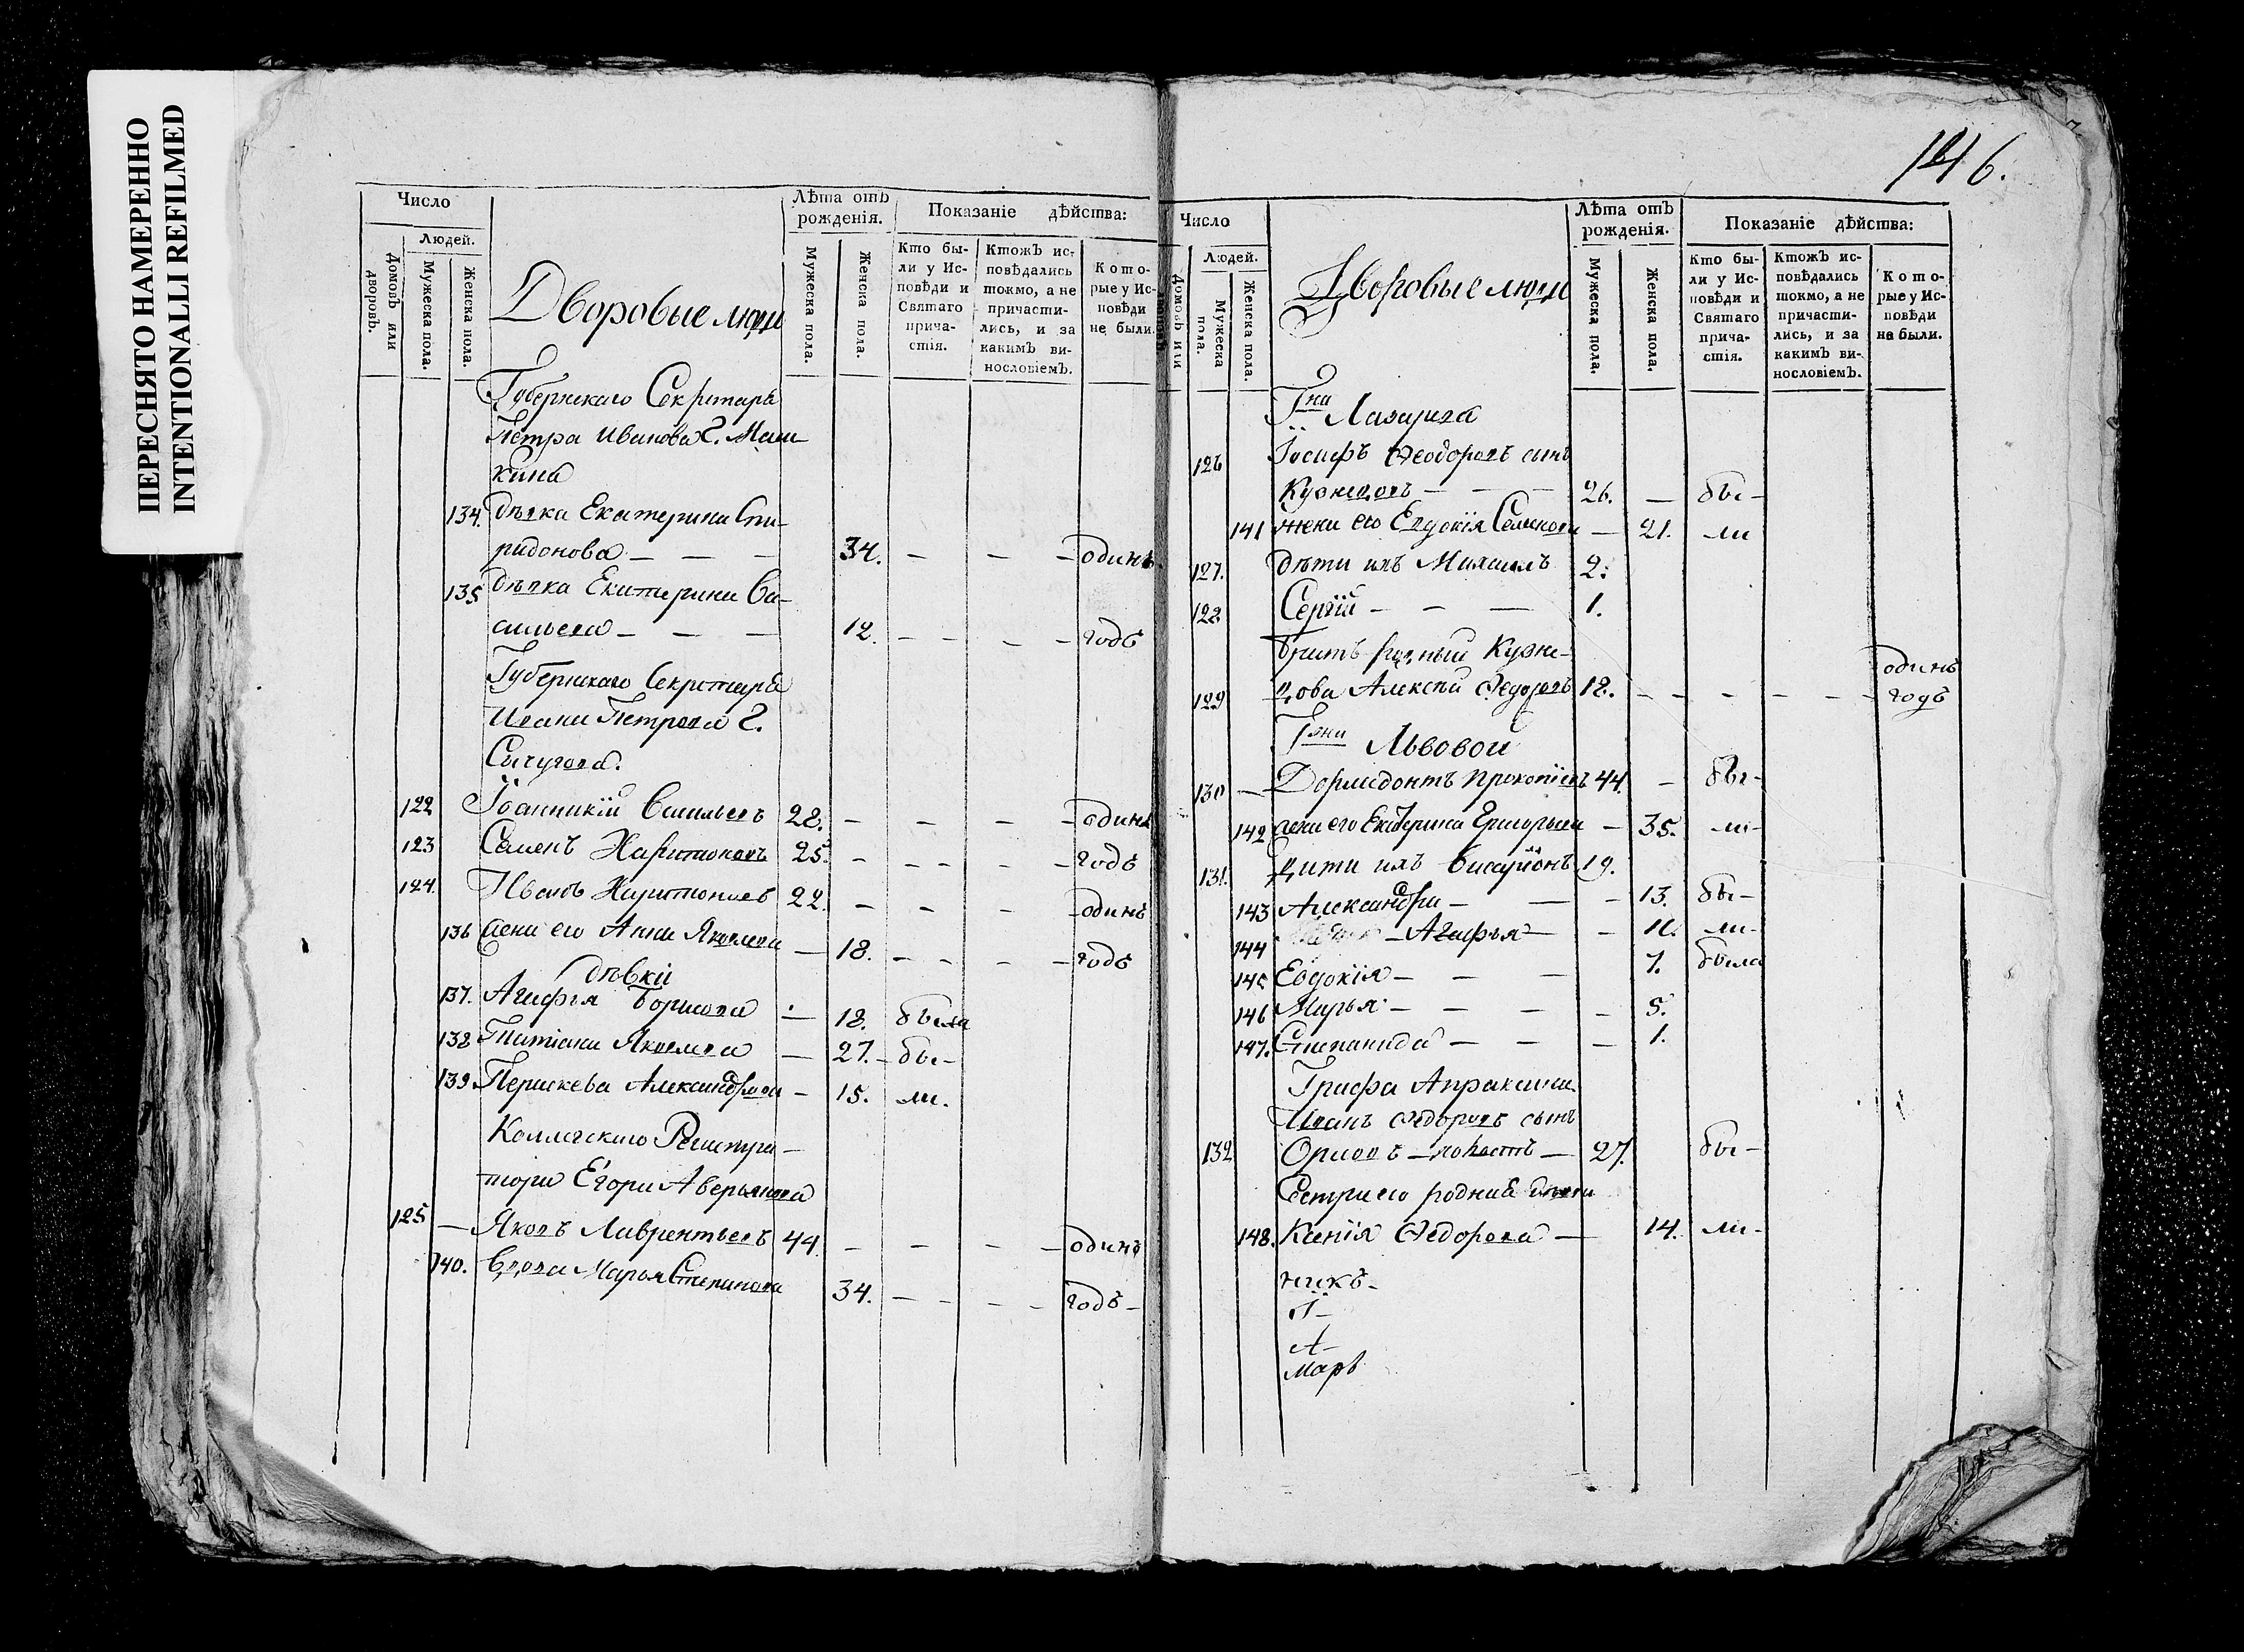 ПЕРЕСНЯТО НАМЕРЕННО
INTENTIONALLI REFILMED
146.
Число
Людей.
Домовъ или дворовъ.
Мужеска пола.
Женска пола.
Дворовые люди
Лѣта отъ рожденія.
Мужеска пола.
Женска пола.
Показаніе дѣйства:
Кто бы-
ли у Ис-
повѣди и
Святаго
прича-
стія.
Ктожъ ис-
повѣдались
токмо, а не
причасти-
лись, и за
какимъ ви-
нословіемъ.
Кото-
рые у Ис-
повѣди
не были.
Губернскаго Секретаря
Петра Иванова С.
кина
134. дѣвка Екатерина Спи-
ридонова — — — 34. — — — одинъ
135 дѣвка Екатерина Ва-
сильева — — — 12. — — — — годъ
Губернскаго Секретаря
Ивана Петрова С.
Сичугова.
122 Іоанникій Васильевъ 28. — — — — одинъ
123 Семенъ Харитоновъ 25. — — — — — годъ
124. Иванъ Харитоновъ 22. — — — — одинъ
136 жена его Анна Яковлева — 18. — — — — годъ
дѣвки
137. Агафья Борисова — 18. была
138 Татіана Яковлева — 27. — бы-
139. Параскева Александрова — 15. ли.
Коллегскаго Регистра-
тора Егора Аверьянова
125 — Яковъ Лаврентьевъ 44. — — — — одинъ
140. вдова Марья Степанова 34. — — — — годъ —
Число
Людей.
Домовъ или
Мужеска пола.
Женска пола.
Дворовые люди
Лѣта отъ рожденія.
Мужеска пола.
Женска пола.
Показаніе дѣйства:
Кто бы-
ли у Ис-
повѣди и
Святаго
прича-
стія.
Ктожъ ис-
повѣдались
токмо, а не
причасти-
лись, и за
какимъ ви-
нословіемъ.
Кото-
рые у Ис-
повѣди
не были.
Гна Лазарева
126 Іосифъ Ѳеодоровъ сынъ
Кузнецовъ — — — 26. — бы-
141 жена его Евдокія Семенова — 21. ли
127. дѣти ихъ Михаилъ 2.
128 Сергій — — — 1.
Братъ родный Кузне- одинъ
129 цова Алексѣй Ѳедоровъ 18. — — — — — годъ
Гжи Львовой
130 — Дормидонтъ Прокопіевъ 44. — бы-
142 жена его Екатерина Григорьева — 35. ли-
131. Дѣти ихъ Виссаріонъ 19.
143 Александра — — — 13. бы-
144 Агафья — — ли-
145 Евдокія — — — 7. была
146 Марья — — — — 5.
147. Степанида — — — 1.
Графа Апраксина
Иванъ Ѳедоровъ сынъ
132 Орловъ — холостъ — 27. бы-
Сестра его родная дѣвка
148. Ксенія Ѳедорова — 14. ли-
А-
Марь